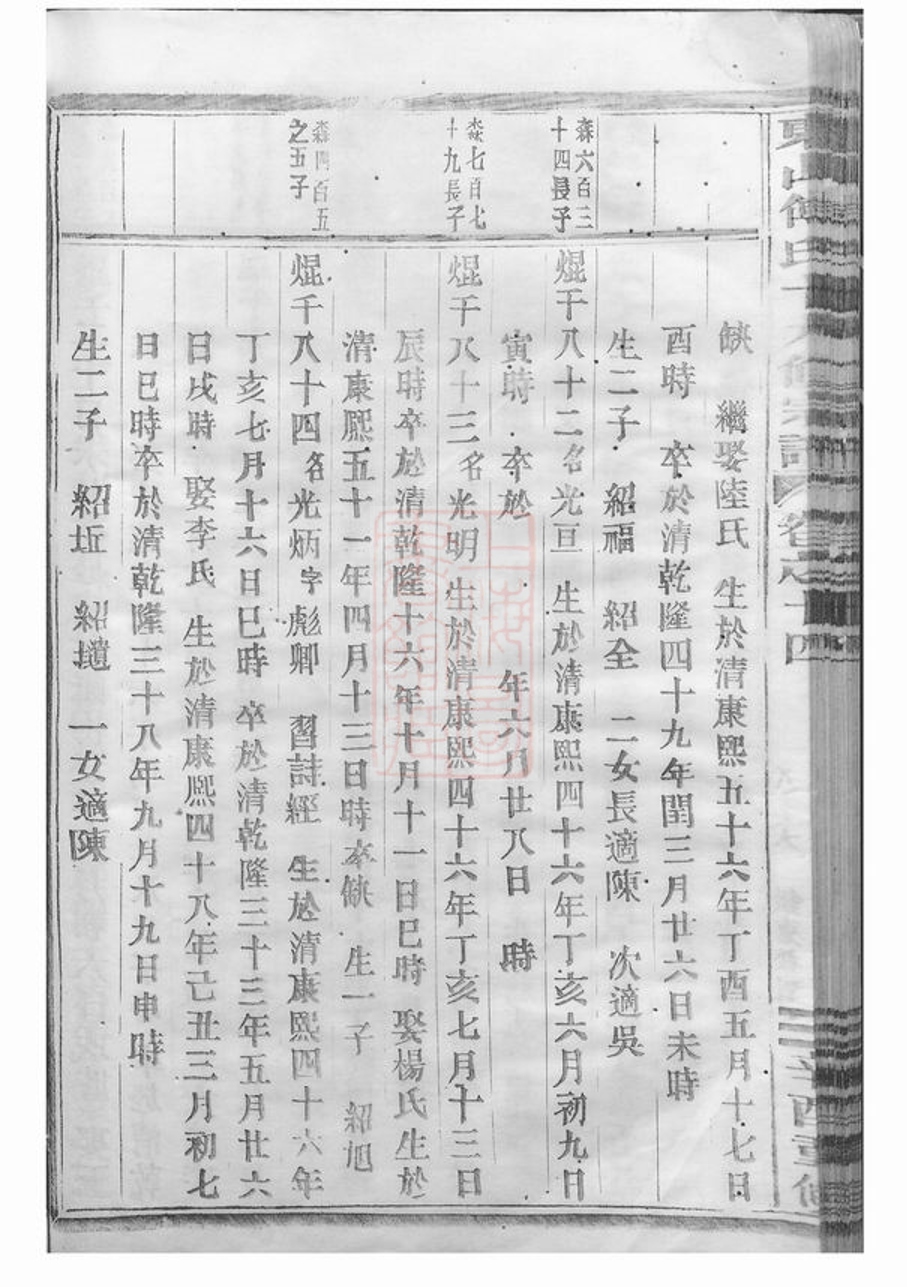 缺 繼娶陸氏 生於清康熙五十六年丁酉五月十七日
酉時 卒於清乾隆四十九年閏三月廿六日未時
生二子 紹福 紹全 二女長適陳 次適吳
森六百三
十四長子
焜千八十二名光亘 生於清康熙四十六年丁亥六月初九日
寅時 卒於 年六月廿八日 時
森七百七
十九長子
焜千八十三名光明 生於清康熙四十六年丁亥七月十三日
辰時卒於清乾隆十六年十月十一日巳時 娶楊氏生於
清康熙五十一年四月十三日時卒缺 生一子 紹旭
森四百五
之五子
焜千八十四名光炳字彪卿 習詩經 生於清康熙四十六年
丁亥七月十六日巳時 卒於清乾隆三十三年五月廿六
日戌時 娶李氏 生於清康熙四十八年己丑三月初七
日巳時卒於清乾隆三十八年九月十九日申時
生二子 紹坵 紹壝 一女適陳